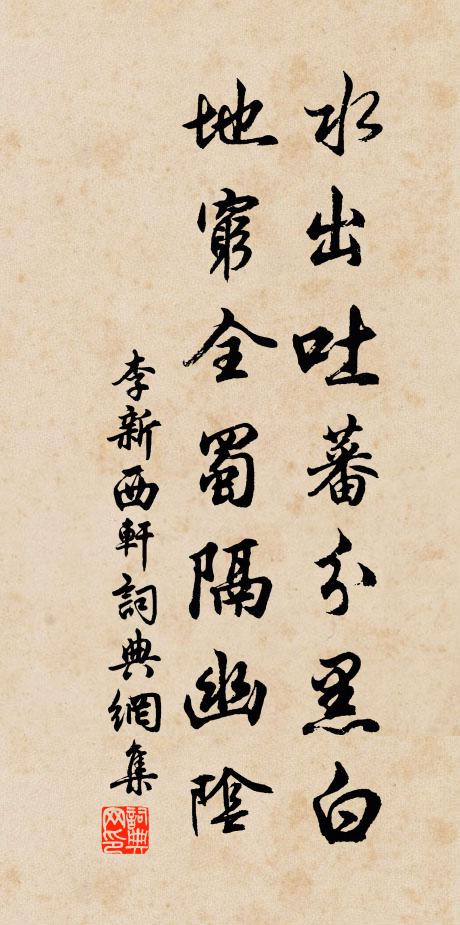 水出吐蕃分黑白
地窮全蜀隔幽陰
李新西軒詞典網集
詞典網印